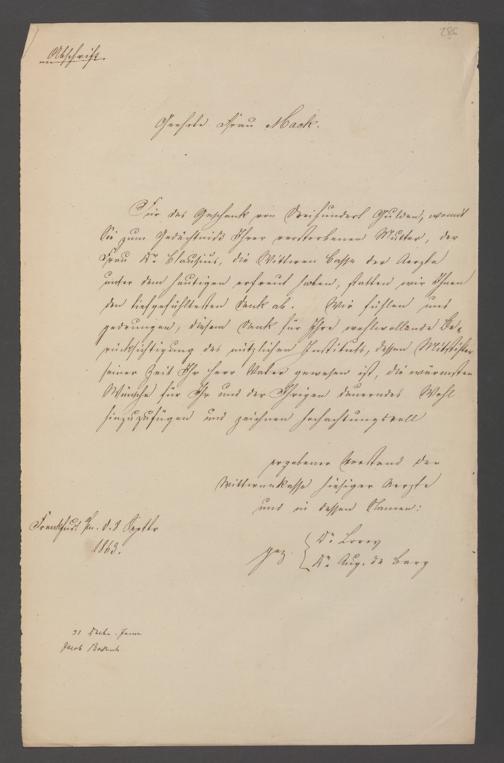 286
Abschrift.
Geehrte Frau Mack.
Für das Geschenk von Dreihundert Gulden, womit
Sie zum Gedächtniß Ihrer verstorbenen Mutter, der
Frau Dr. Clausius, die Wittwen Casse der Aerzte
unter dem heutigen erfreut haben, statten wir Ihnen
den tiefgefühltesten Dank ab. Wir fühlen uns
gedrungen, diesem Dank für Ihre wohlwollende Be-
rücksichtigung des nützlichen Instituts, dessen Mitstifter
seiner Zeit Ihr Herr Vater gewesen ist, die wärmsten
Wünsche für Ihr und der Ihrigen dauerndes Wohl
hinzuzufügen und zeichnen hochachtungsvoll
ergebener Vorstand der
Wittwenkasse hiesiger Aerzte
und in dessen Namen:
Frankfurt d. 8 Septbr
1863.
gez. Dr.
Dr. Aug. de Bary
Jacob